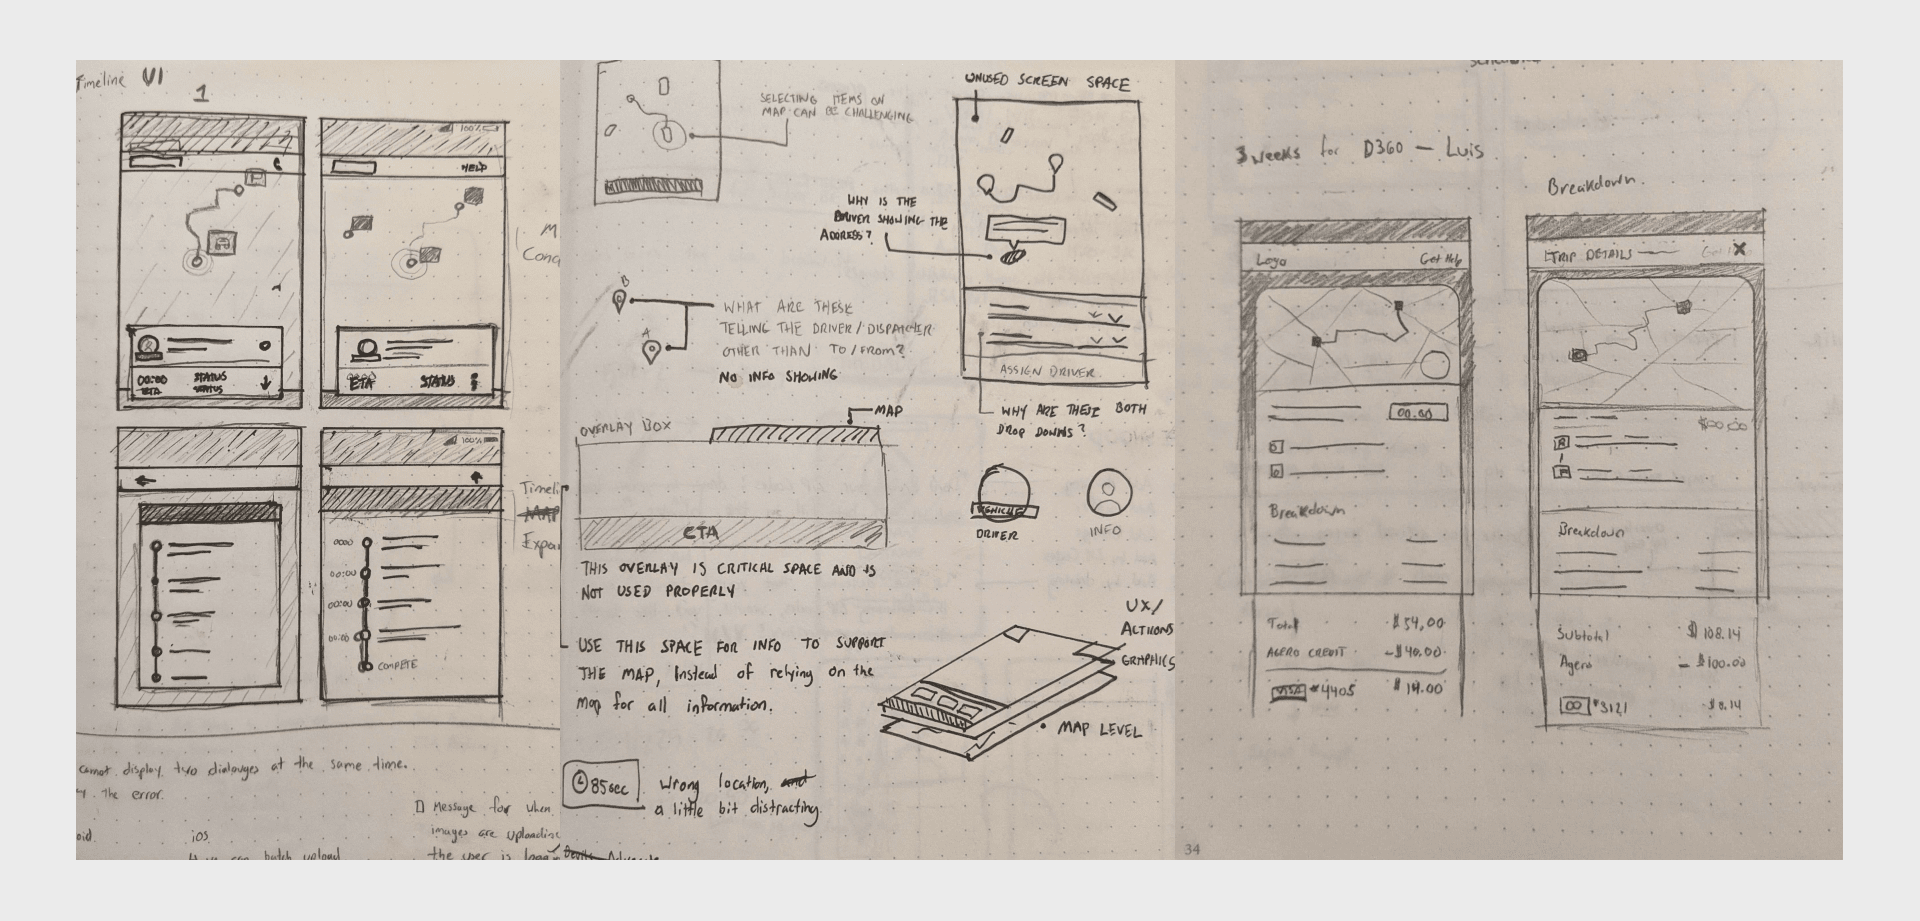 Timeline UI
1
100%
HELP
00:00
ETA
STATUS
STATUS
ETA
STATUS
100%
00:00
00:00
00:00
00:00
COMPETE
Timeli
MAP
Expan
cannot display two dialouges at the same time.
The error.
oid
iOS
batch upload
Message for when
images are uploading
the user is
SELECTING ITEMS ON
MAP CAN BE CHALLENGING
UNUSED SCREEN SPACE
WHY IS THE
DRIVER SHOWING THE
ADDRESS?
B
A
WHAT ARE THESE
TELLING THE DRIVER/DISPATCHER
OTHER THAN TO/FROM?
NO INFO SHOWING
ASSIGN DRIVER
WHY ARE THESE BOTH
DROP DOWNS?
MAP
OVERLAY BOX
ETA
THIS OVERLAY IS CRITICAL SPACE AND IS
NOT USED PROPERLY
VEHICLE
DRIVER
INFO
USE THIS SPACE FOR INFO TO SUPPORT
THE MAP, Instead of relying on the
map for all information.
UX/
ACTIONS
GRAPHICS
MAP LEVEL
85sec
Wrong location, and
a little bit distracting.
3 weeks for D360 — Luis
Logo
Get Help
00.00
Breakdown
Total $54,00
AGERO CREDIT -$40.00
VISA #4405 $14.00
Breakdown
TRIP DETAILS
X
$00.00
Breakdown
Subtotal $108.14
Agero - $100.00
#3121 $8.14
34